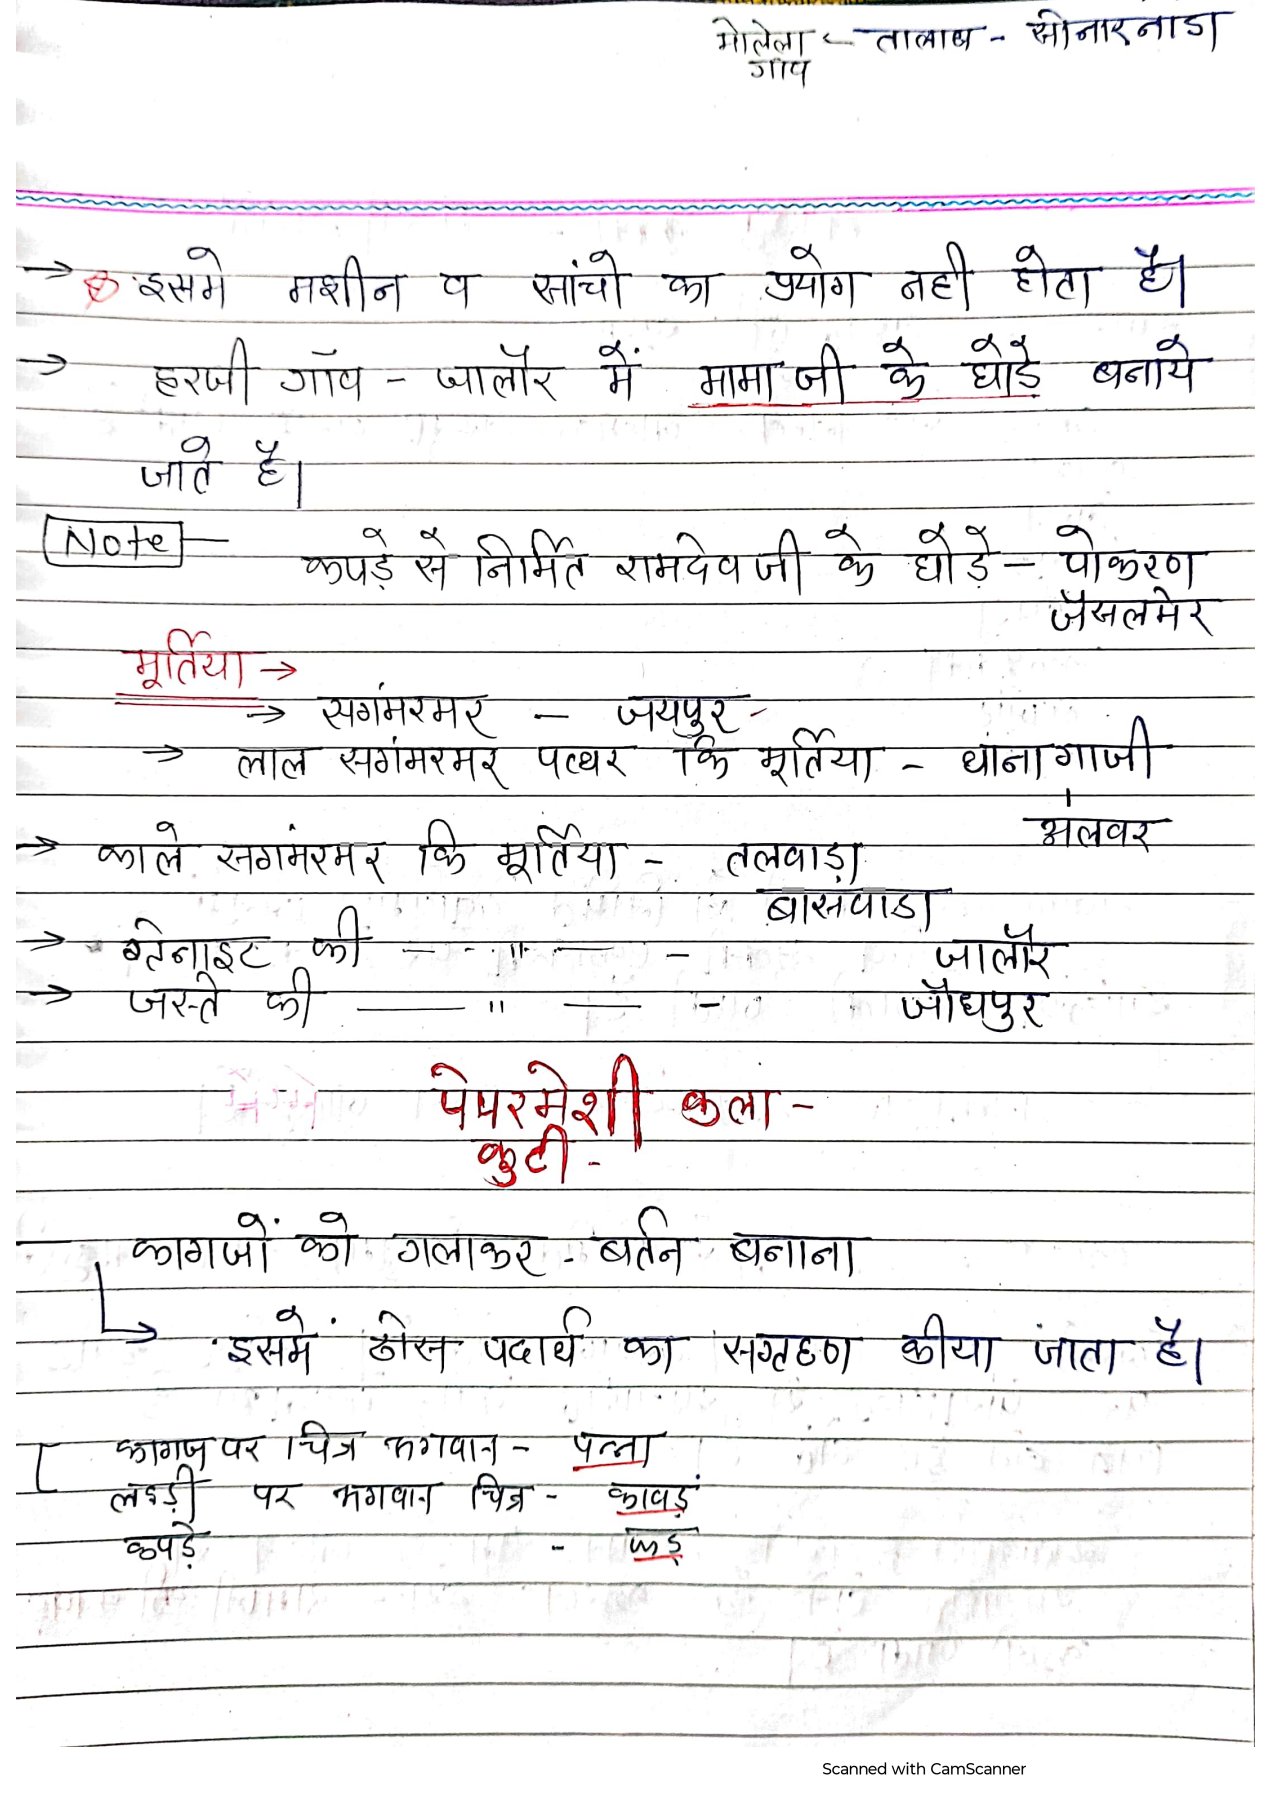 मोलेला <- तालाब - सोनारनाडा
गांव
→ इसमे मशीन व सांचो का प्रयोग नही होता है।
→ हरजी गॉव - जालौर में मामा जी के घोडे बनाये
जाते है।
Note - कपड़े से निर्मित रामदेव जी के घोड़े - पोकरण
जैसलमेर
मूर्तिया →
→ सगंमरमर - जयपुर -
→ लाल सगंमरमर पत्थर कि मूर्तिया - थानागाजी
अलवर
→ काले सगमंरमर कि मूर्तिया - तलवाड़ा
बांसवाडा
→ ग्रेनाइट की — - " — - जालौर
→ जस्ते की — " — - जौधपुर
पेपरमेशी कला -
कुटी -
कागजों को गलाकर - बर्तन बनाना
↳ इसमें ठोस पदार्थ का सग्रहण कीया जाता है।
कागज पर चित्र भगवान - पन्ना
लकड़ी पर भगवान चित्र - कावड़
कपड़े - फड़
Scanned with CamScanner